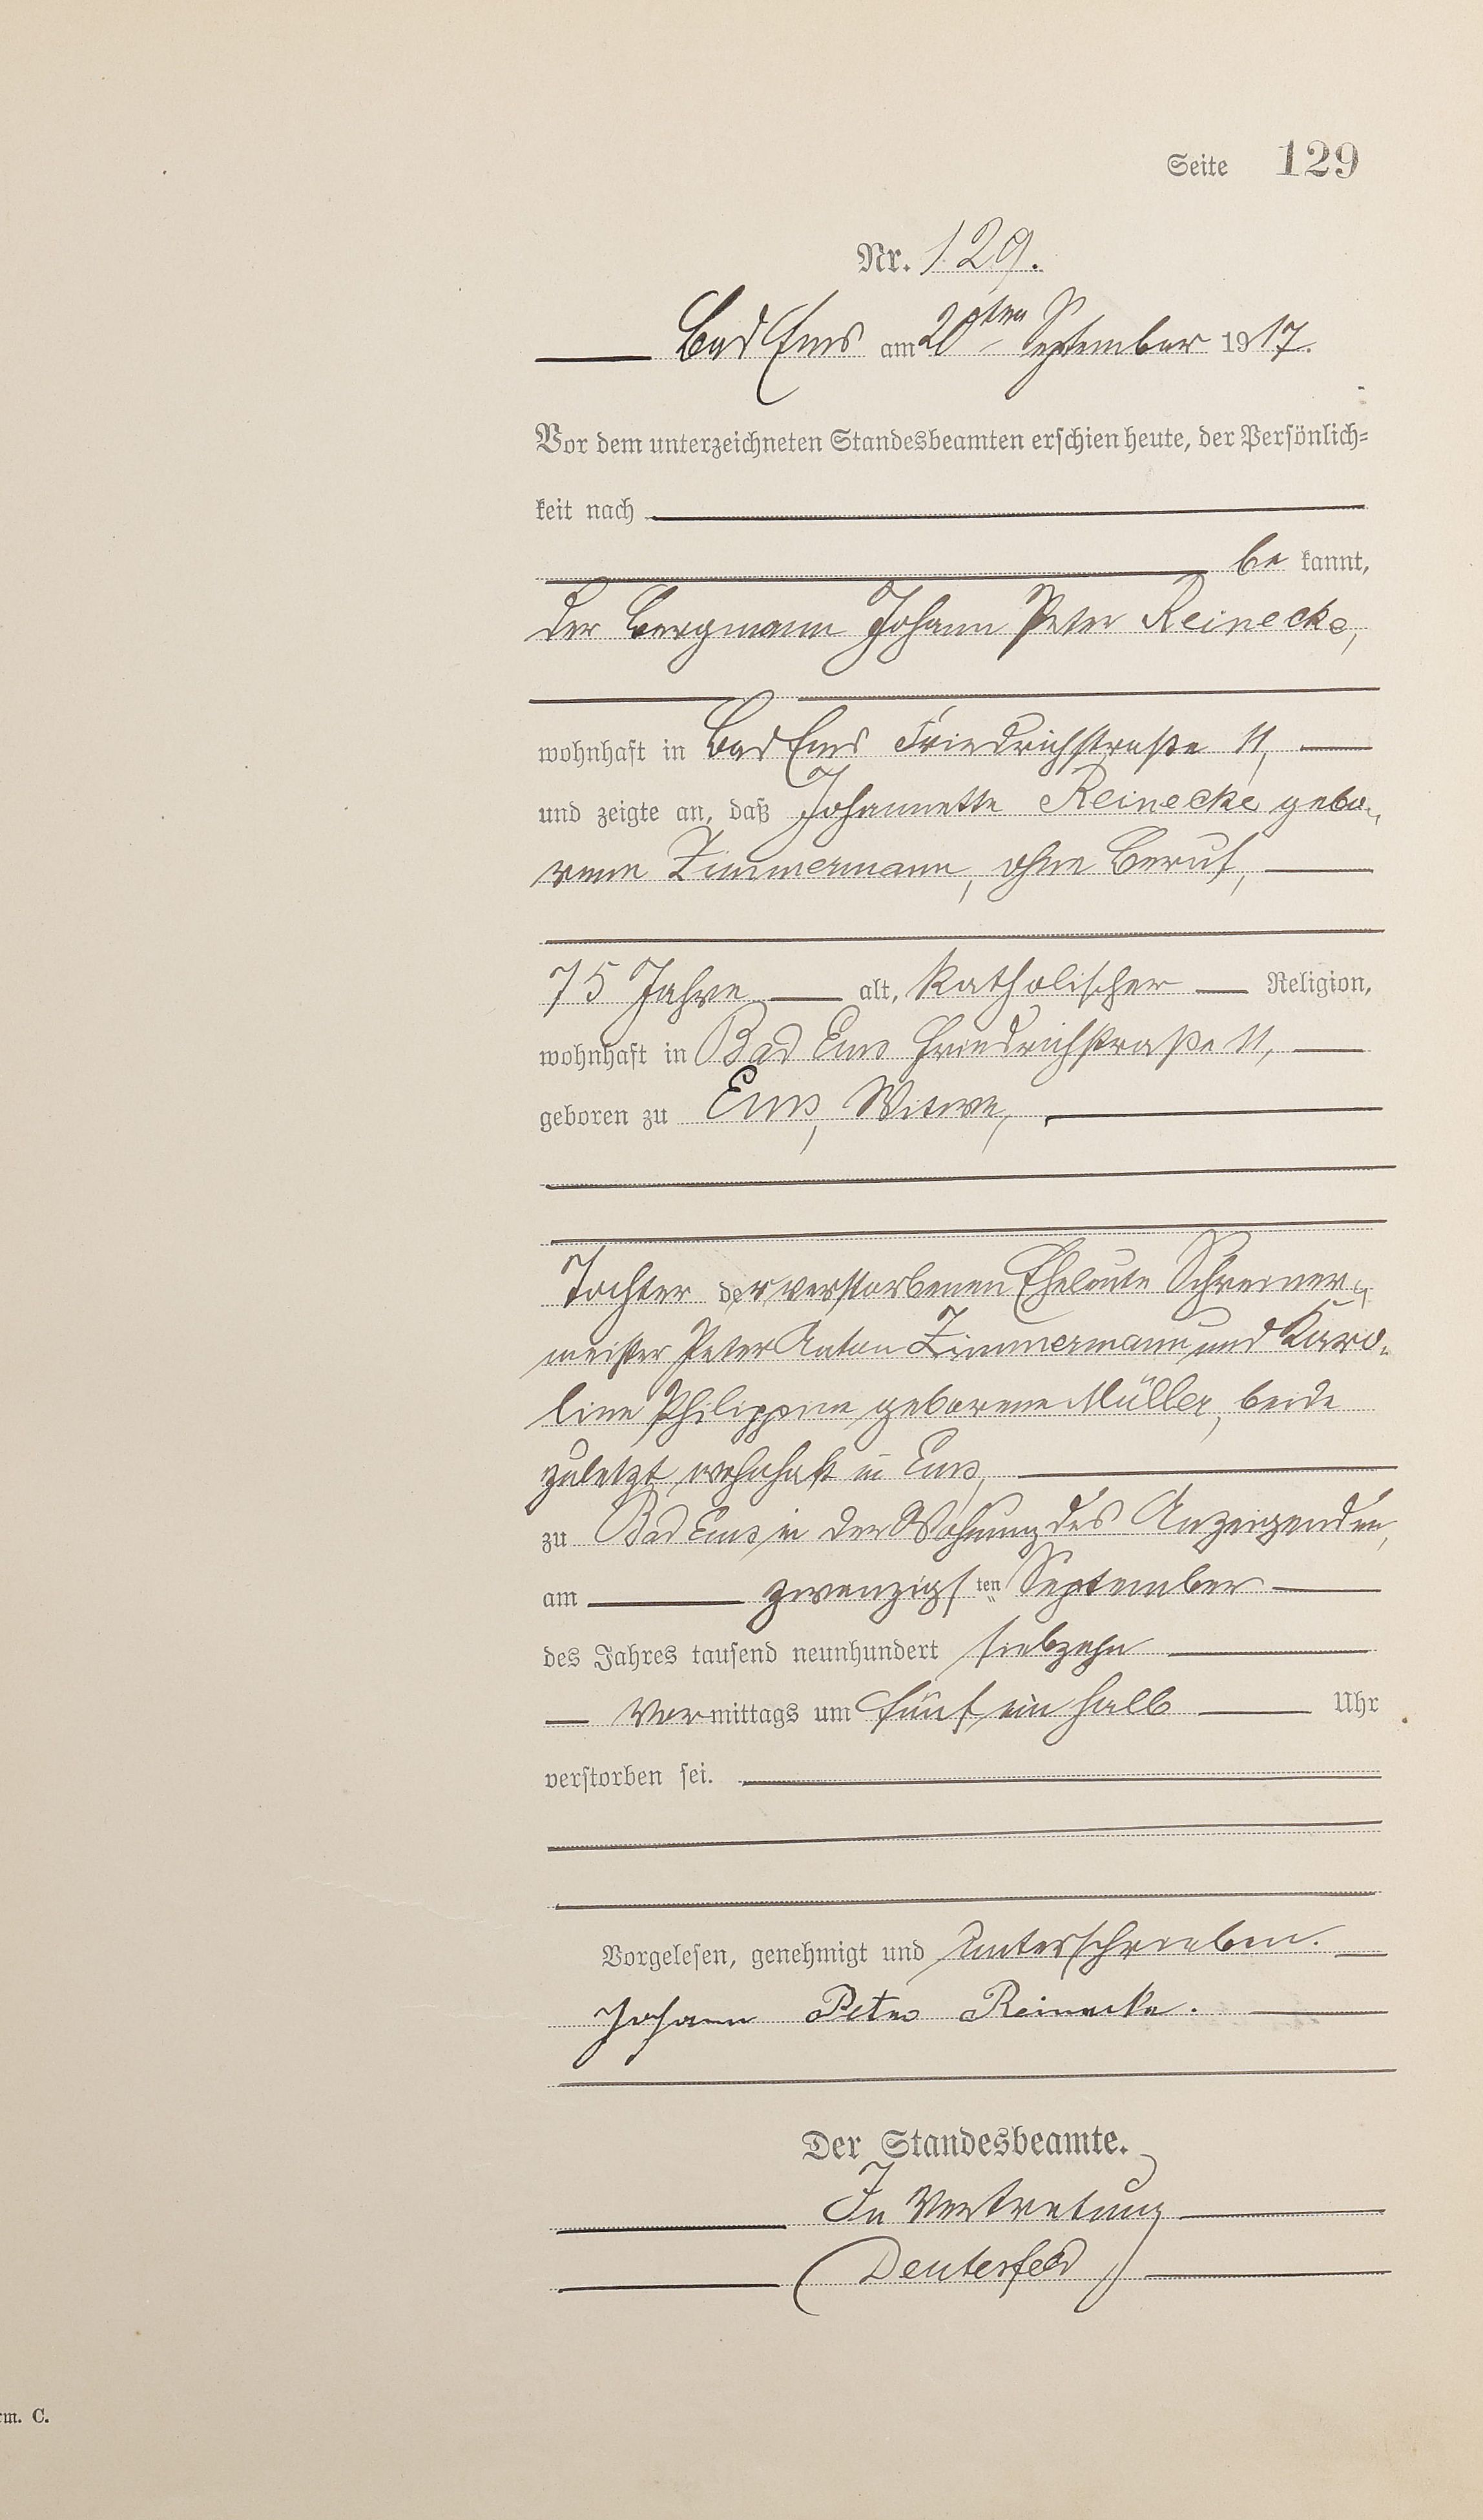 Seite 129
Nr. 129.
Bad Ems am 20sten September 1917.
Vor dem unterzeichneten Standesbeamten erschien heute, der Persönlich-
keit nach
be kannt,
der Bergmann Johann Peter Reinecke,
wohnhaft in Bad Ems Friedrichstraße 11,
und zeigte an, daß Johannette Reinecke gebo-
rene Zimmermann, ohne Beruf,
75 Jahre alt, katholischer Religion,
wohnhaft in Bad Ems Friedrichstraße 11,
geboren zu Ems, Witwe,
Tochter der verstorbenen Eheleute Schreiner-
meister Peter Anton Zimmermann und Karo-
line Philippine geborene Müller, beide
zuletzt wohnhaft in Ems,
zu Bad Ems in der Wohnung des Anzeigenden,
am zwanzigsten September
des Jahres tausend neunhundert siebzehn
Vormittags um fünf ein halb Uhr
verstorben sei.
Vorgelesen, genehmigt und unterschrieben.
Johann Peter Reinecke.
Der Standesbeamte.
In Vertretung
rm. C.